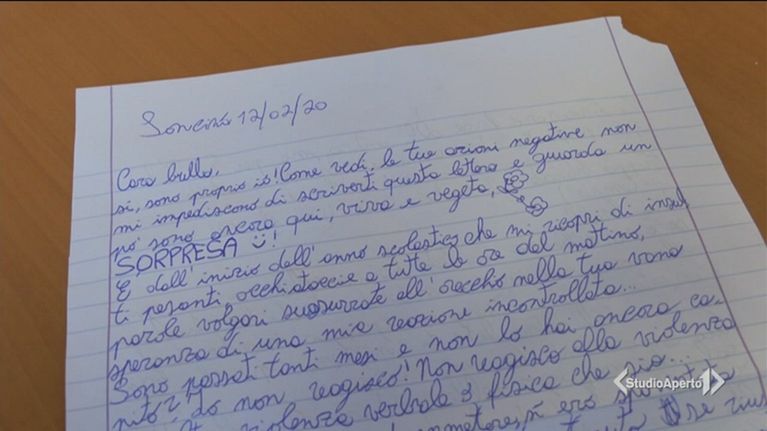 Soncino 12/02/20
Caro bullo,
si, sono proprio io! Come vedi, le tue azioni negative non
mi impediscono di scriverti questa lettera e guarda un
po' sono ancora qui, viva e vegeta,
SORPRESA !
E dall'inizio dell'anno scolastico che mi ricopri di insul
ti pesanti, occhiataccie a tutte le ore del mattino,
parole volgari sussurrate all'orecchio nella tua vana
speranza di una mia reazione incontrollata...
Sono passati tanti mesi e non lo hai ancora ca-
pito? Io non reagisco! Non reagisco alla violenza
violenza verbale o fisica che sia...
ero
se
StudioAperto1